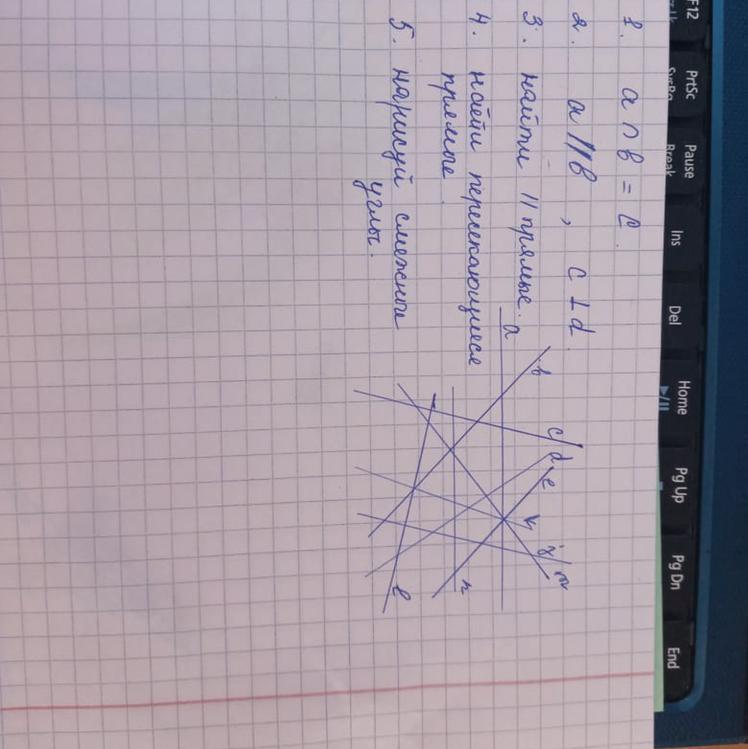 1. a ∩ b = C.
2. a || b , c ⊥ d.
3. найти || прямые.
4. найти пересекающиеся
прямые.
5. нарисуй смежные
углы.
a
b
c
d
e
k
m
n
l
F12
PrtSc
SysRq
Pause
Break
Ins
Del
Home
Pg Up
Pg Dn
End